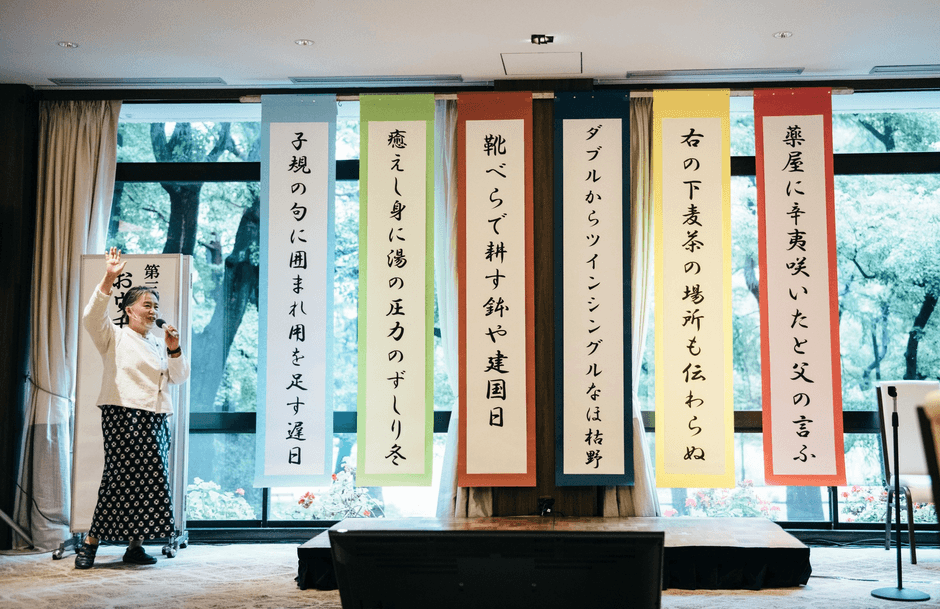 薬屋に辛夷咲いたと父の言ふ
右の下麦茶の場所も伝わらぬ
ダブルからツインシングルなほ枯野
靴べらで耕す鉢や建国日
癒えし身に湯の圧力のずしり冬
子規の句に囲まれ用を足す遅日
第
お